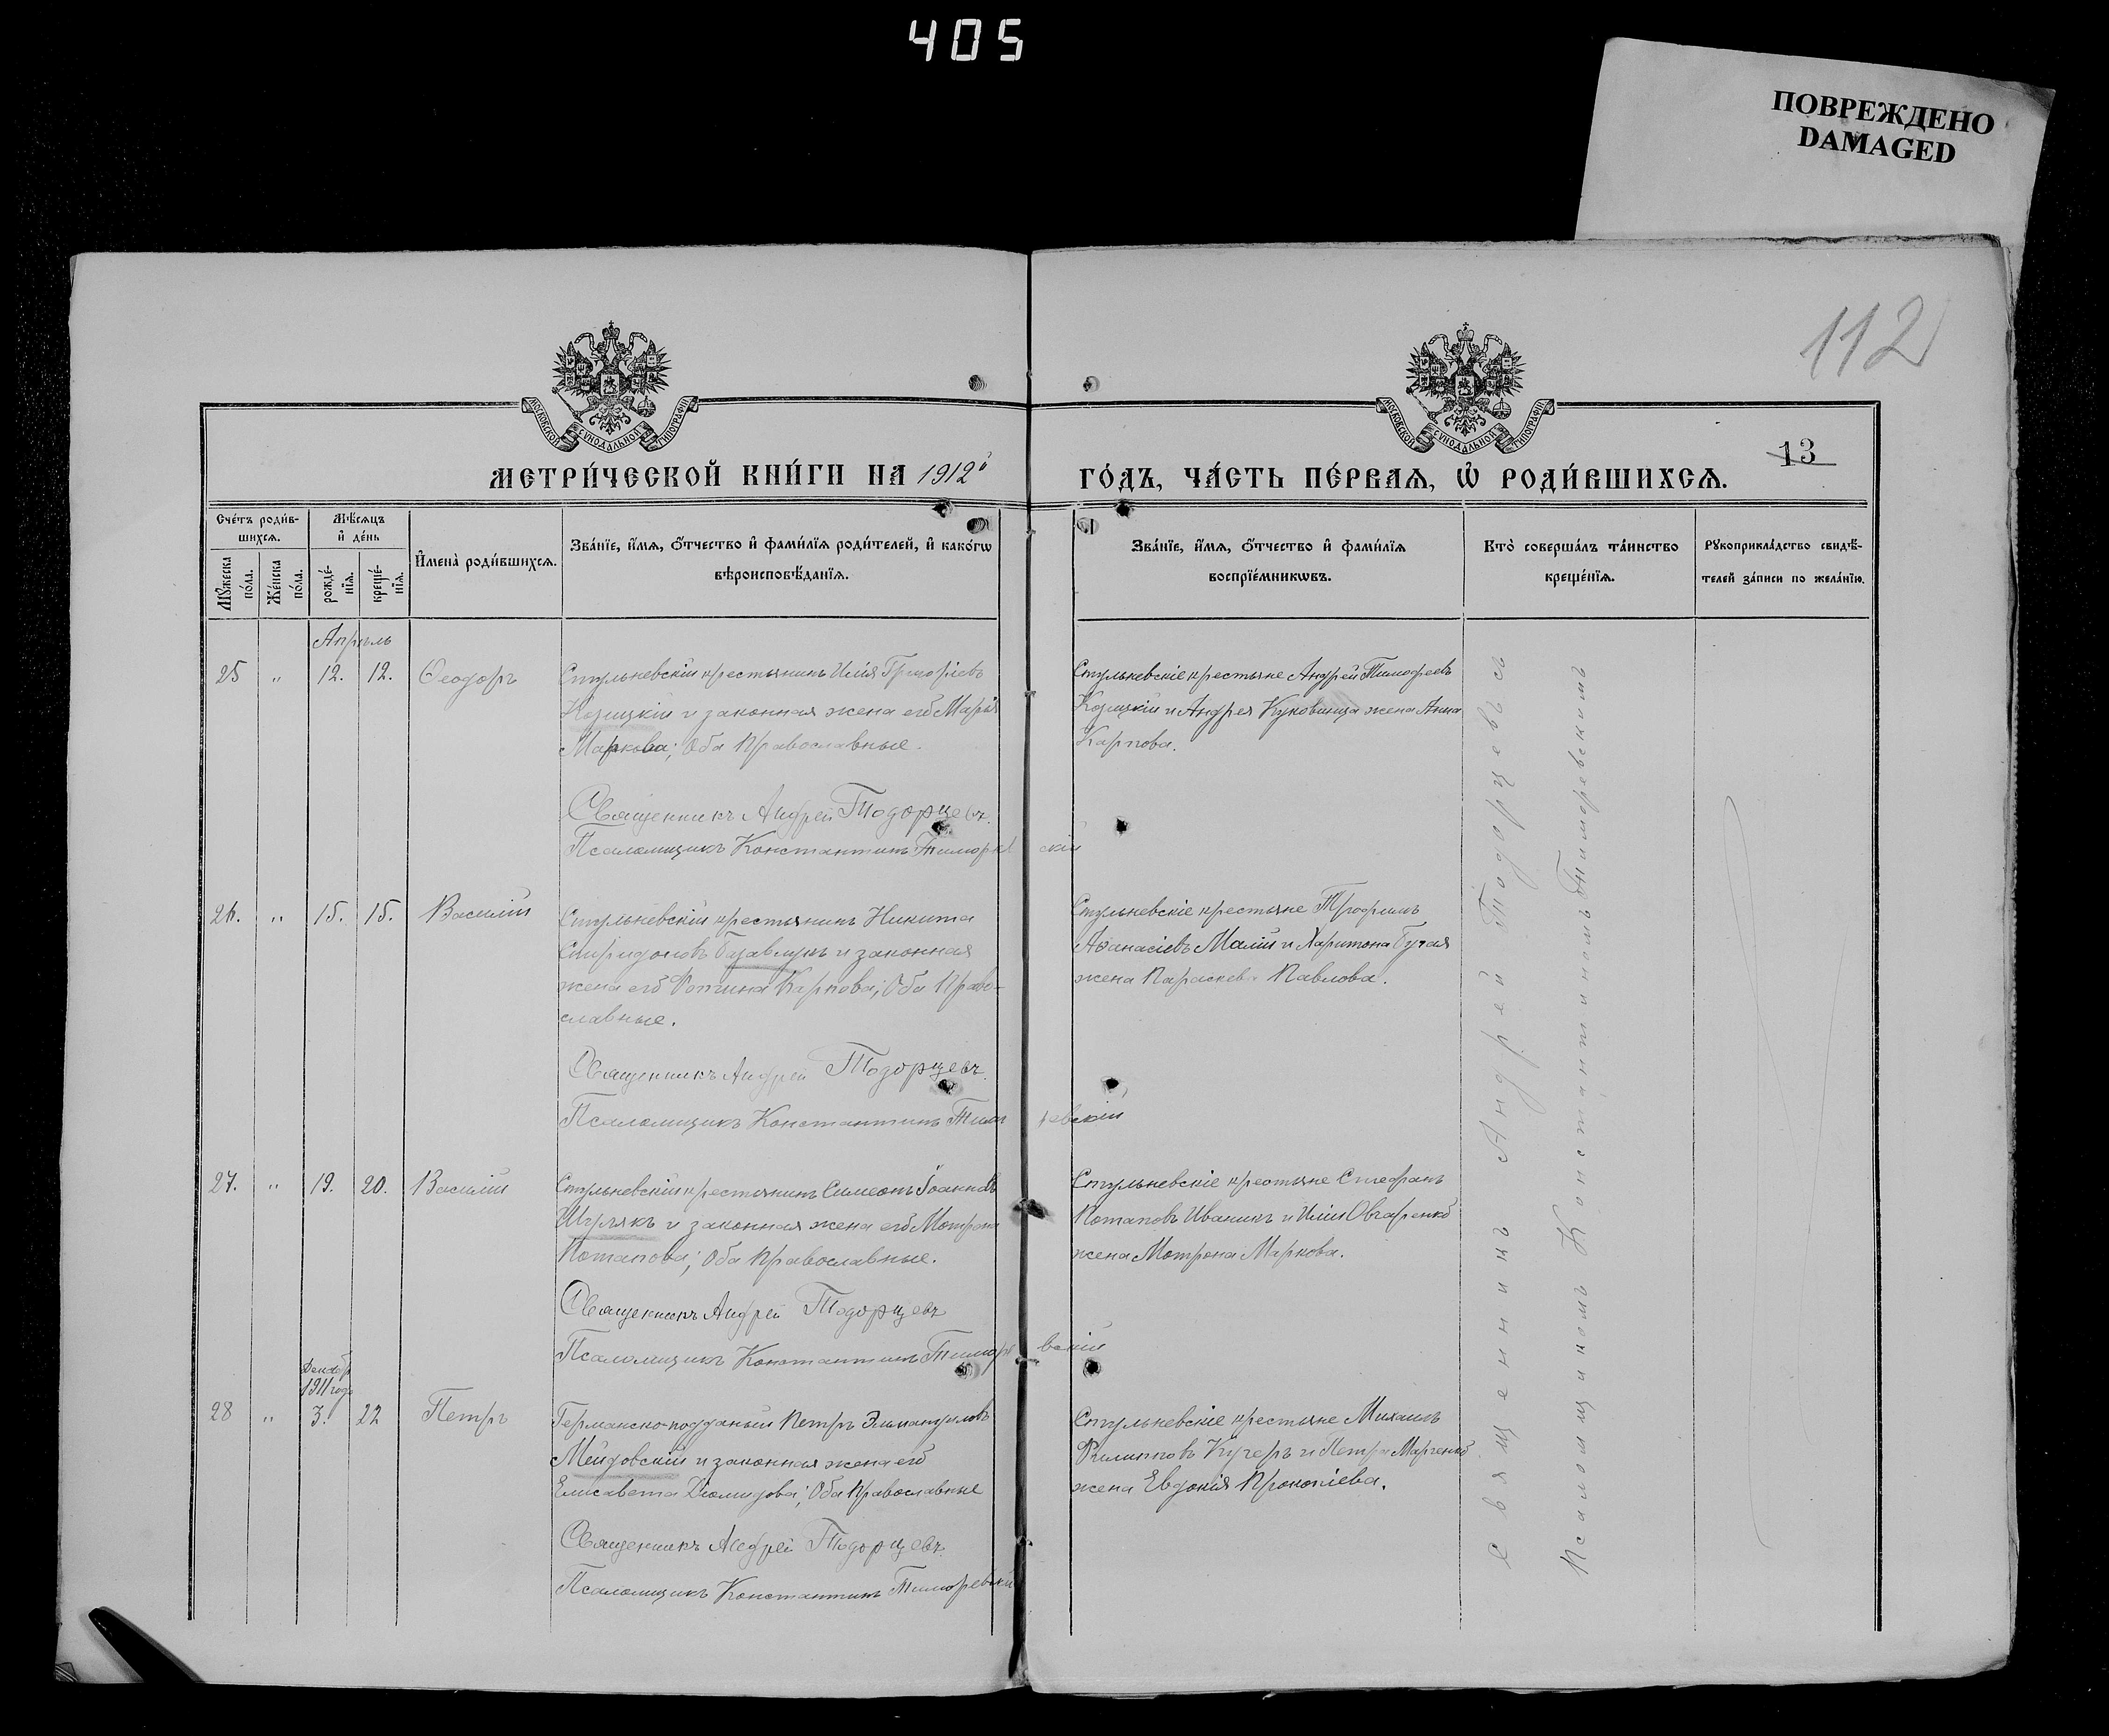 405
ПОВРЕЖДЕНО
DAMAGED
112
МОСКОВСКОЙ СѴНОДАЛЬНОЙ ТИПОГРАФІИ
МОСКОВСКОЙ СѴНОДАЛЬНОЙ ТИПОГРАФІИ
13
МЕТРИ́ЧЕСКОЙ КНИ́ГИ НА 1912й
ГО́ДЪ, ЧА́СТЬ ПЕ́РВАѦ, Ѡ҆ РОДИ́ВШИХСѦ.
Сче́тъ роди́в-
шихсѧ.
Мѣ́сѧцъ
и҆ де́нь
Мꙋ́жеска по́ла.
Же́нска по́ла.
рожде́-нїѧ.
креще́-нїѧ.
И҆мена̀ роди́вшихсѧ.
Зва́нїе, и҆́мѧ, ѻ҆́тчество и҆ фами́лїѧ роди́телей, и҆ како́гѡ
вѣроисповѣ́данїѧ.
Зва́нїе, и҆́мѧ, ѻ҆́тчество и҆ фами́лїѧ
воспрїе́мникѡвъ.
Кто̀ соверша́лъ та́инство
креще́нїѧ.
Рꙋкоприкла́дство свидѣ́-
телей за́писи по жела́нїю.
Апрѣль
25 „ 12. 12. Ѳеодоръ
Стульневскій крестьянинъ Илія
Козицкій и законная жена его Марія
Маркова; Оба Православные.
Священникъ Андрей Тодорцевъ.
Псаломщикъ Константинъ Тиморевскій
Стульневскіе крестьяне Андрей Тимофеевъ
Козицкій и Андрея Куковица жена Анна
Карпова.
26. „ 15. 15. Василій
Стульневскій крестьянинъ Никита
Спиридоновъ и законная
жена его Фотина Карпова; Оба Право-
славные.
Священникъ Андрей Тодорцевъ.
Псаломщикъ Константинъ Тиморевскій
Стульневскіе крестьяне Трофимъ
Аѳанасіевъ Малій и Харитона
жена Параскева Павлова.
27. „ 19. 20. Василій
Стульневскій крестьянинъ Симеонъ Іоанновъ
и законная жена его Мотрона
Потапова; Оба Православные.
Священникъ Андрей Тодорцевъ
Псаломщикъ Константинъ Тиморевскій
Стульневскіе крестьяне Стефанъ
Потаповъ Иваникъ и Иліи Овчаренко
жена Мотрона Маркова.
Декабр
1911 года
28 „ 3. 22 Петръ
Германско-подданый Петръ Эммануиловъ
Мейдовскій и законная жена его
Елисавета Діомидова; Оба Православные
Священникъ Андрей Тодорцевъ.
Псаломщикъ Константинъ Тиморевскій
Стульневскіе крестьяне Михаилъ
Филипповъ Кучеръ и Петра Марченко
жена Евдокія Прокопіева.
Священникъ Андрей Тодорцевъ
Псаломщикомъ Константиномъ Тиморевскимъ